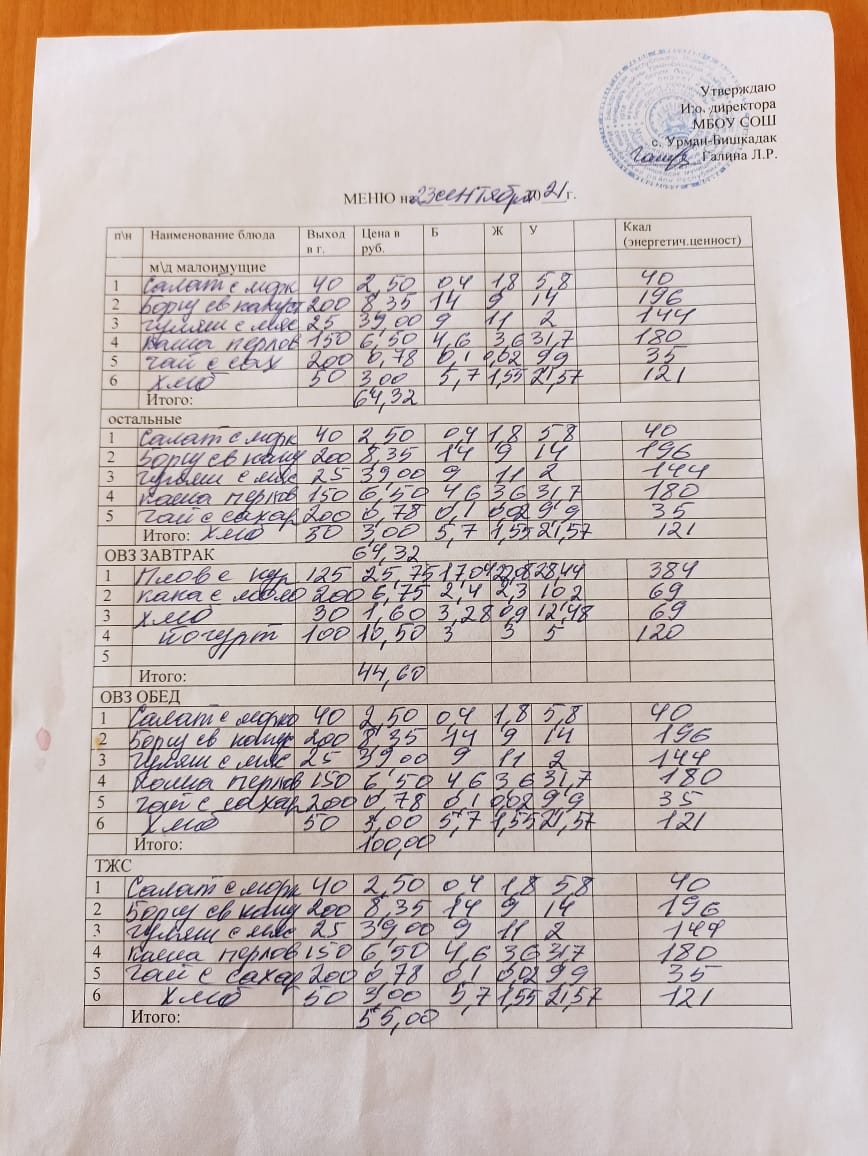 Утверждаю
И.о. директора
МБОУ СОШ
с. Урман-Бишкадак
Галина Л.Р.
МЕНЮ на 23 сентября 2021 г.
п\н Наименование блюда Выход в г. Цена в руб. Б Ж У Ккал (энергетич.ценност)
м\д малоимущие
1 Салат с морк 40 2,50 04 1,8 5,8 40
2 Борщ св капуст 200 8,35 14 9 14 196
3 гуляш с мяс 25 39,00 9 11 2 144
4 каша перлов 150 6,50 4,6 3,6 31,7 180
5 чай с сах 200 0,78 0,1 0,02 9,9 35
6 хлеб 50 3,00 5,7 1,55 21,57 121
Итого: 64,32
остальные
1 Салат с морк 40 2,50 04 1,8 5,8 40
2 Борщ св капу 200 8,35 14 9 14 196
3 гуляш с мяс 25 39,00 9 11 2 144
4 каша перлов 150 6,50 4,6 3,6 31,7 180
5 чай с сахар 200 0,78 0,1 0,02 9,9 35
Итого: хлеб 50 3,00 5,7 1,55 21,57 121
ОВЗ ЗАВТРАК 64,32
1 Плов с кур 125 25,75 17,04 22,08 28,44 384
2 кака с моло 200 6,75 2,4 2,3 10,2 69
3 хлеб 30 1,60 3,28 0,9 12,48 69
4 йогурт 100 10,50 3 3 5 120
5
Итого: 44,60
ОВЗ ОБЕД
1 Салат с морко 40 2,50 0,4 1,8 5,8 40
2 Борщ св капус 200 8,35 14 9 14 196
3 гуляш с мяс 25 39,00 9 11 2 144
4 каша перлов 150 6,50 4,6 3,6 31,7 180
5 чай с сахар 200 0,78 0,1 0,02 9,9 35
6 хлеб 50 3,00 5,7 1,55 21,57 121
Итого: 100,00
ТЖС
1 Салат с морк 40 2,50 0,4 1,8 5,8 40
2 Борщ св капу 200 8,35 14 9 14 196
3 гуляш с мяс 25 39,00 9 11 2 144
4 каша перлов 150 6,50 4,6 3,6 31,7 180
5 чай с сахар 200 0,78 0,1 0,02 9,9 35
6 хлеб 50 3,00 5,7 1,55 21,57 121
Итого: 55,00